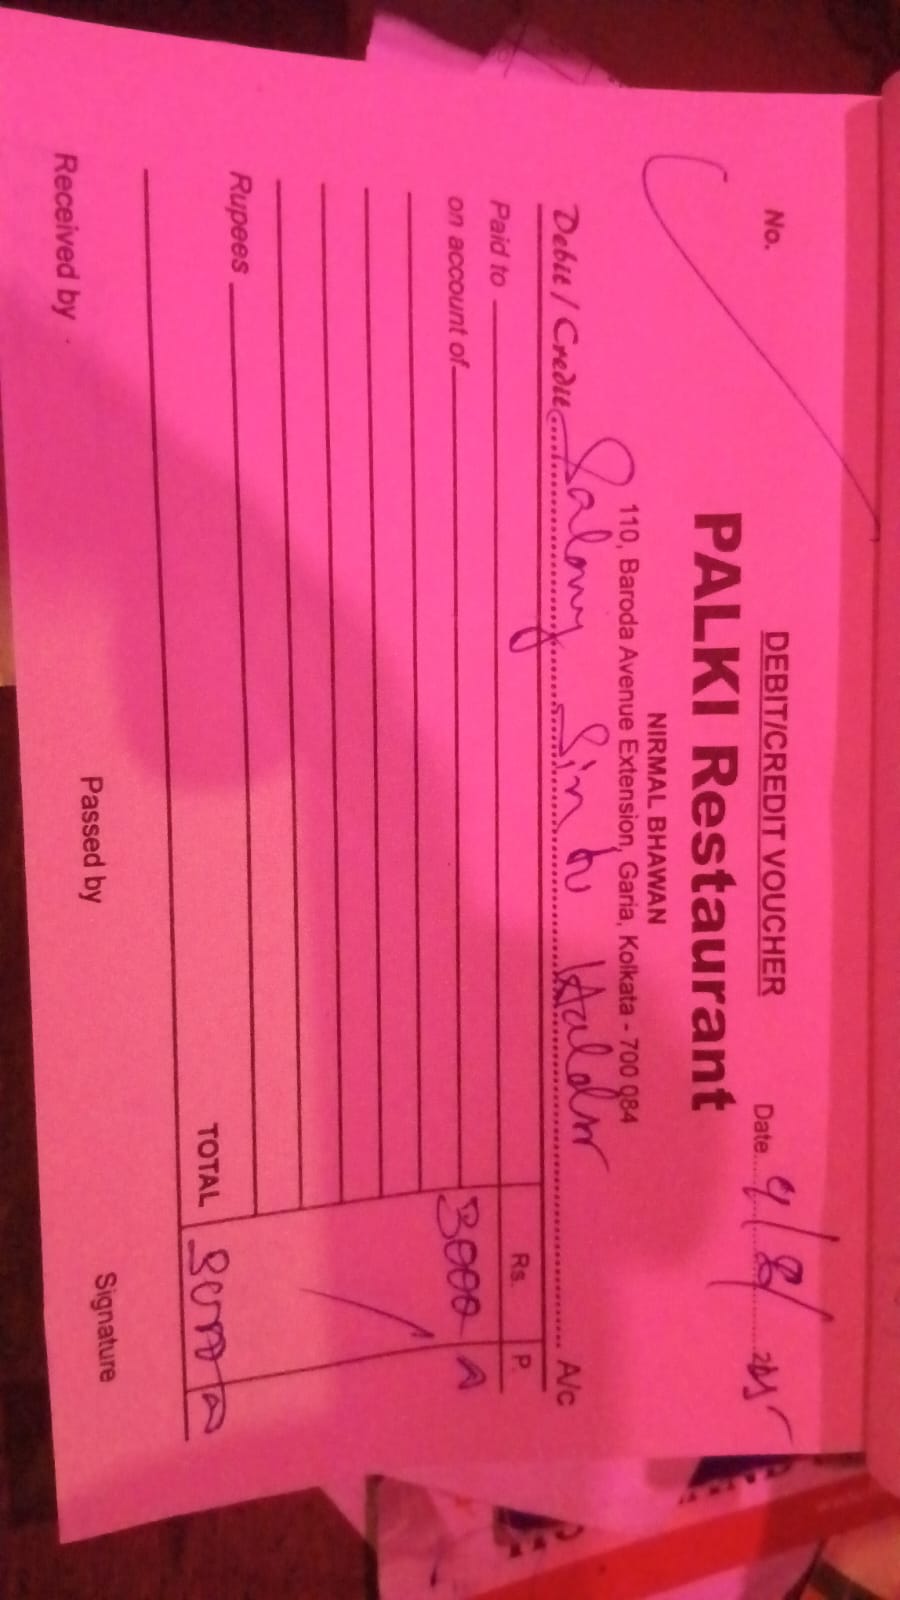 DEBIT/CREDIT VOUCHER
No.
Date 9/8/2025
PALKI Restaurant
NIRMAL BHAWAN
110, Baroda Avenue Extension, Garia, Kolkata - 700 084
Debit / Credit Salary Sintu Halder A/c
Rs. P.
Paid to
on account of 3000
Rupees
TOTAL 3000
Received by Passed by Signature